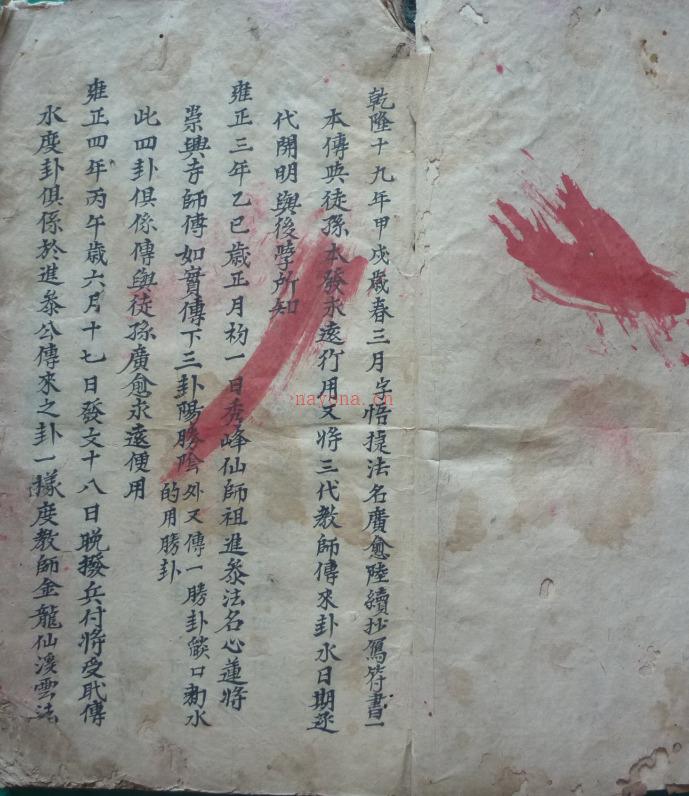 乾隆十九年甲戌歲春三月字悟提法名廣愈陸續抄寫符書一
本傳與徒孫本發永遠行用又將三代教師傳來卦水日期逐
代開明與後學所知
雍正三年乙巳歲正月初一日秀峰仙師祖進叅法名心蓮將
崇興寺師傅如實傳下三卦陽勝陰外又傳一勝卦燄口勅水
的用勝卦
此四卦俱係傳與徒孫廣愈永遠便用
雍正四年丙午歲六月十七日發文十八日晚撥兵付將受耺傳
水度卦俱係於進叅公傳來之卦一樣度教師金龍仙漢雲法
nayona.cn